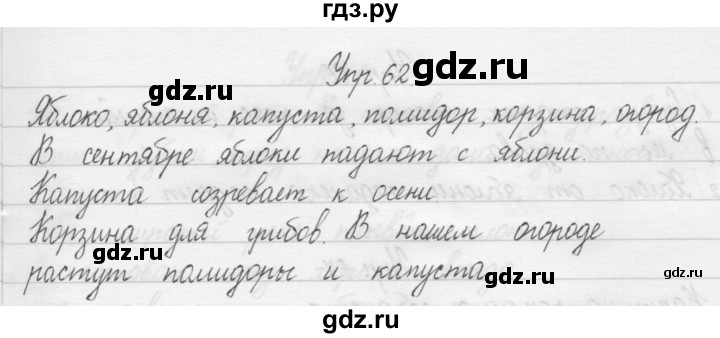 гдз.ру
Упр. 62.
gdz.ru
gdz.ru
Яблоко, яблоня, капуста, помидор, корзина, огород.
gdz.ru
В сентябре яблоки падают с яблони.
gdz.ru
Капуста созревает к осени
gdz.ru
gdz.ru
Корзина для грибов. В нашем огороде
gdz.ru
gdz.ru
растут помидоры и капуста.
gdz.ru
gdz.ru
gdz.ru